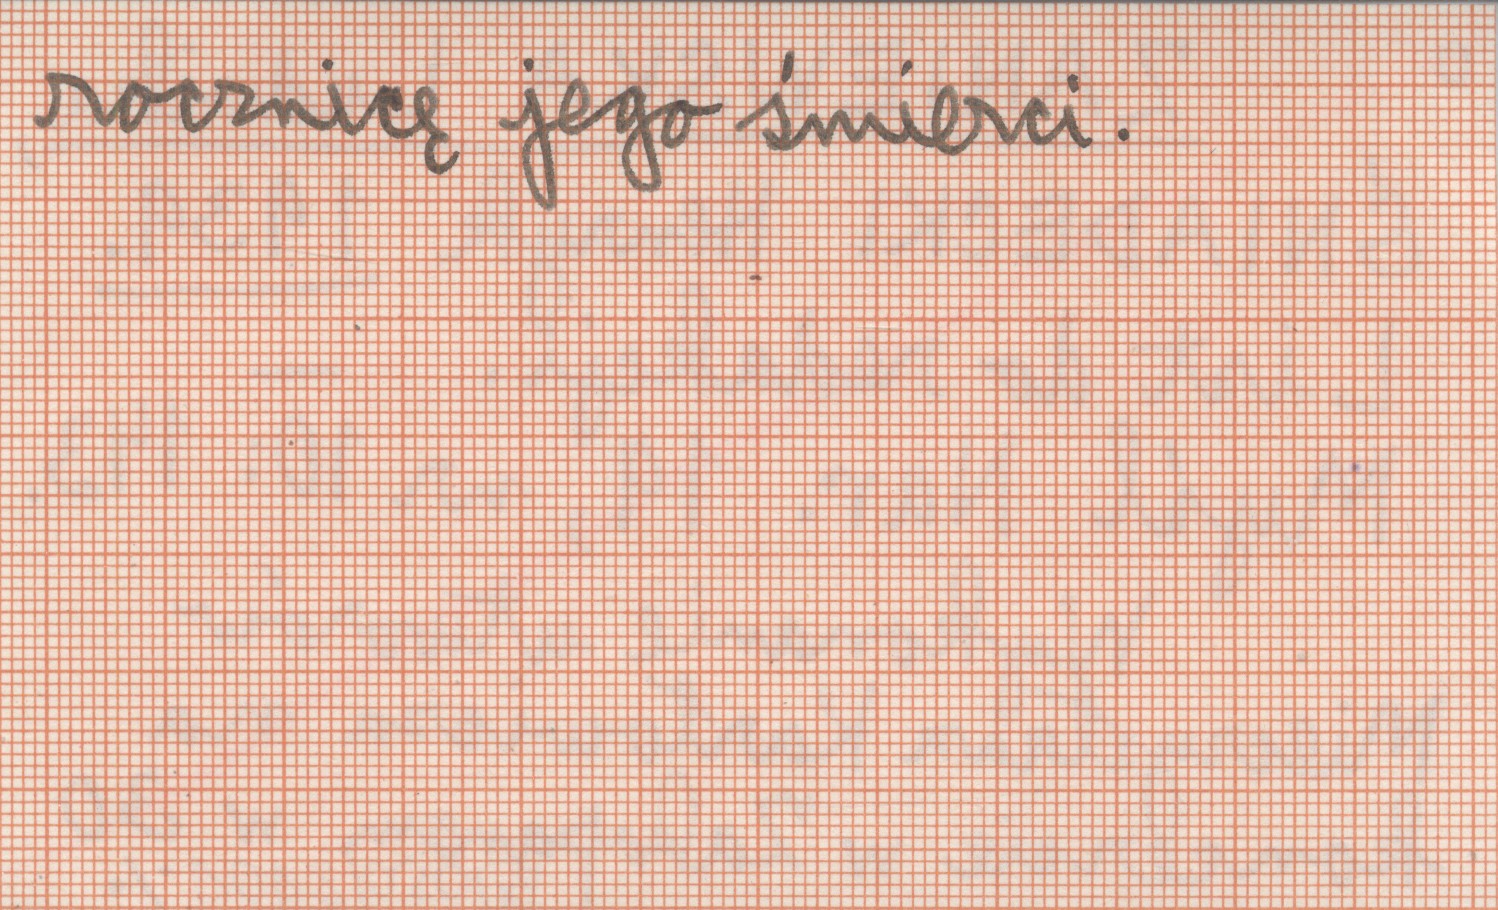 rocznicę jego śmierci.